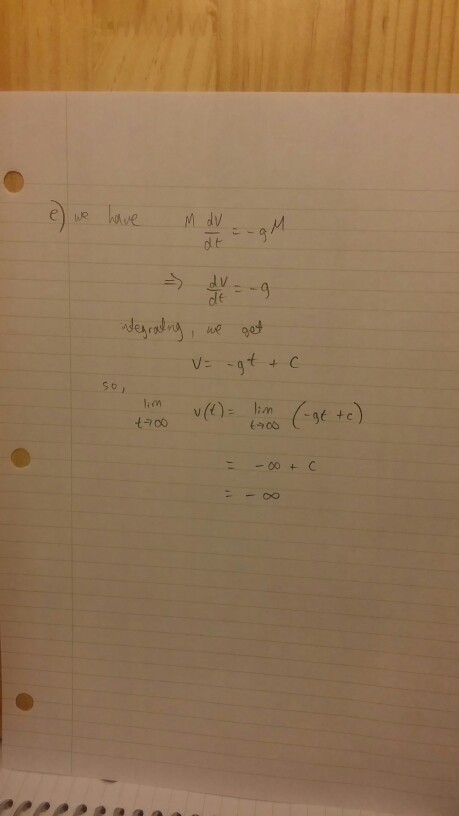 e) we have M dV/dt = -gM
=> dV/dt = -g
integrating, we get
V = -gt + C
so,
lim t→∞ v(t) = lim t→∞ (-gt + c)
= -∞ + c
= -∞